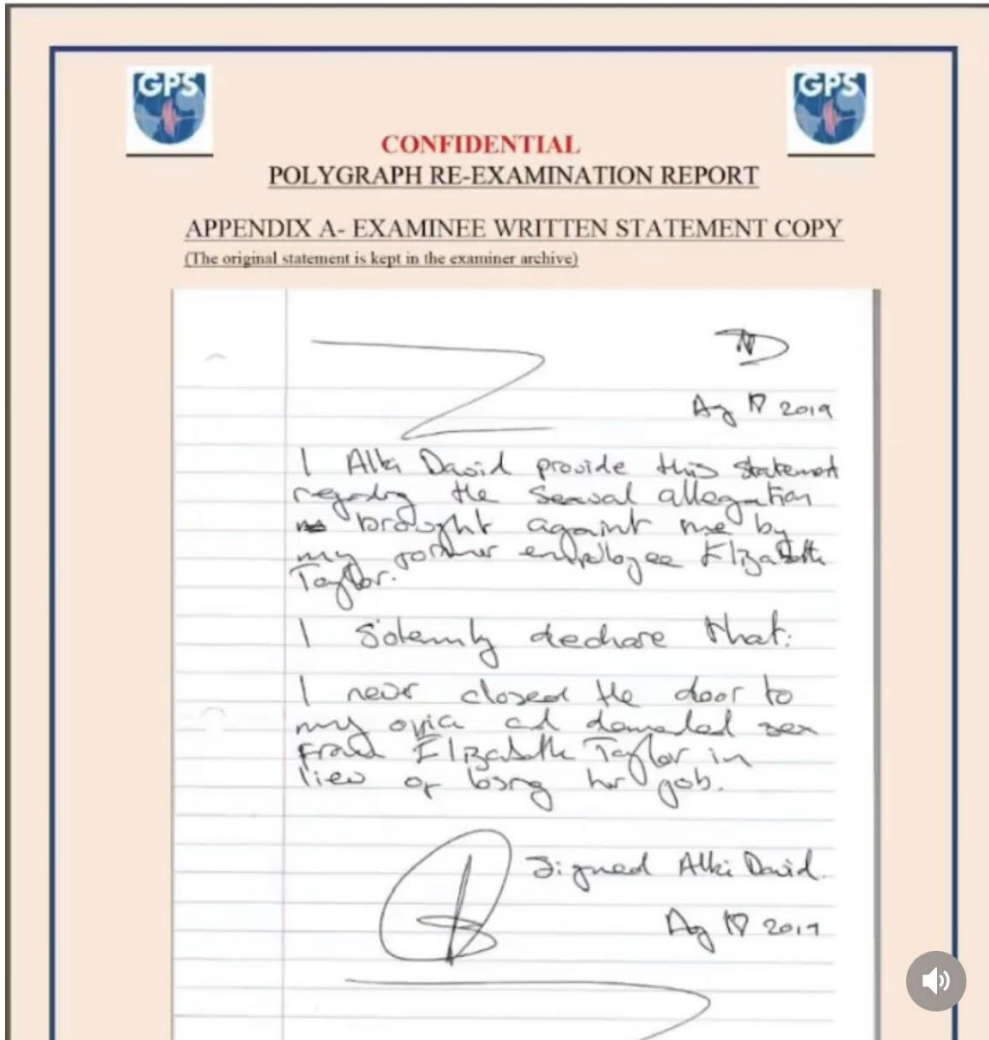 GPS
GPS
CONFIDENTIAL
POLYGRAPH RE-EXAMINATION REPORT
APPENDIX A- EXAMINEE WRITTEN STATEMENT COPY
(The original statement is kept in the examiner archive)
AD
Aug 2019
I Alki David provide this statement
regarding the sexual allegation
brought against me by
my former employee Elizabeth
Taylor.
I solemnly declare that:
I never closed the door to
my office and demanded sex
from Elizabeth Taylor in
lieu of losing her job.
Signed Alki David.
Aug 2019